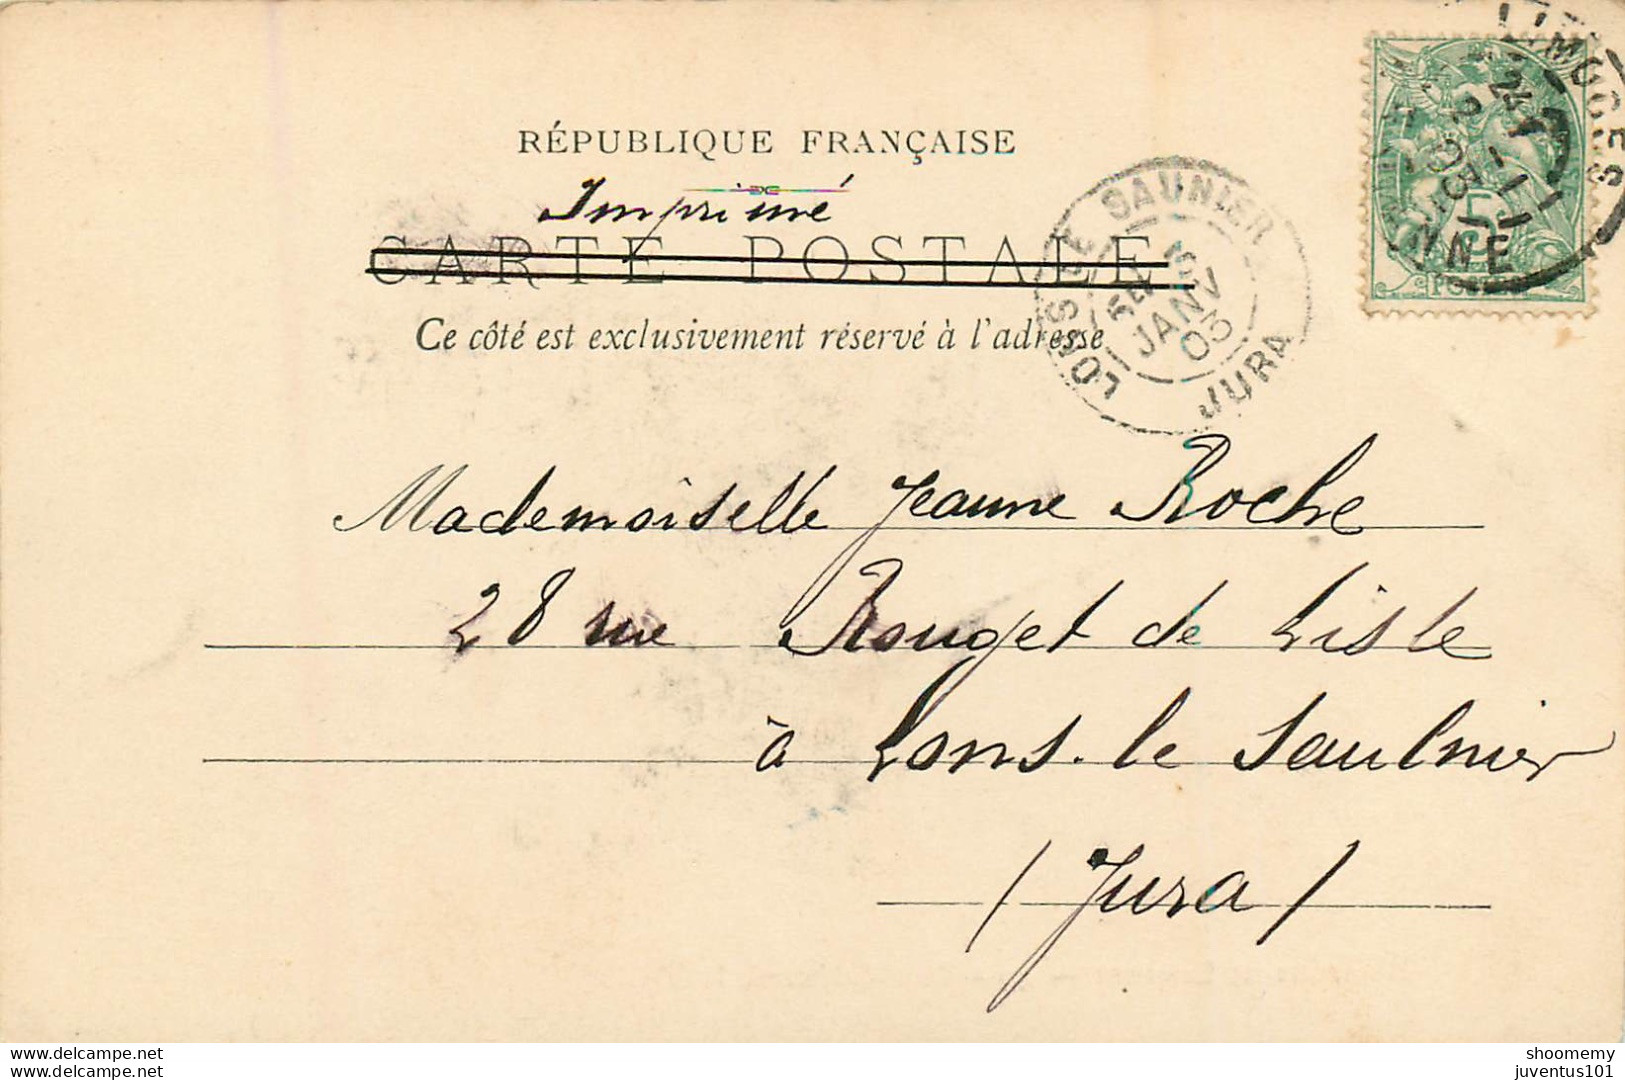 RÉPUBLIQUE FRANÇAISE
Imprimé
CARTE POSTALE
Ce côté est exclusivement réservé à l'adresse
LONS LE SAUNIER
JANV
03
JURA
LIMOGES
5
Mademoiselle Jeanne Roche
28 rue Rouget de Lisle
à Lons-le Saulnier
(Jura)
www.delcampe.net
shoomemy
juventus101